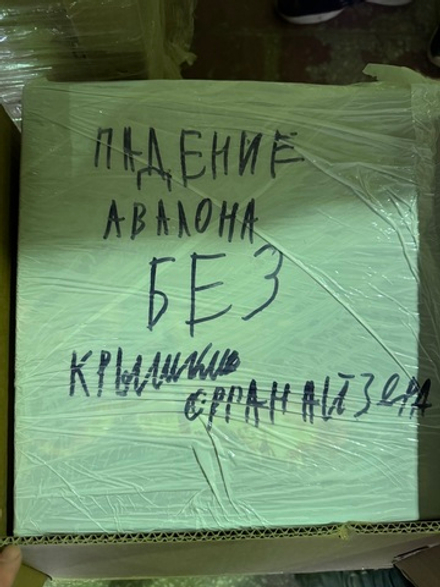 ПАДЕНИЕ
АВАЛОНА
БЕЗ
КРЫШКИ
ОРГАНАЙЗЕРА